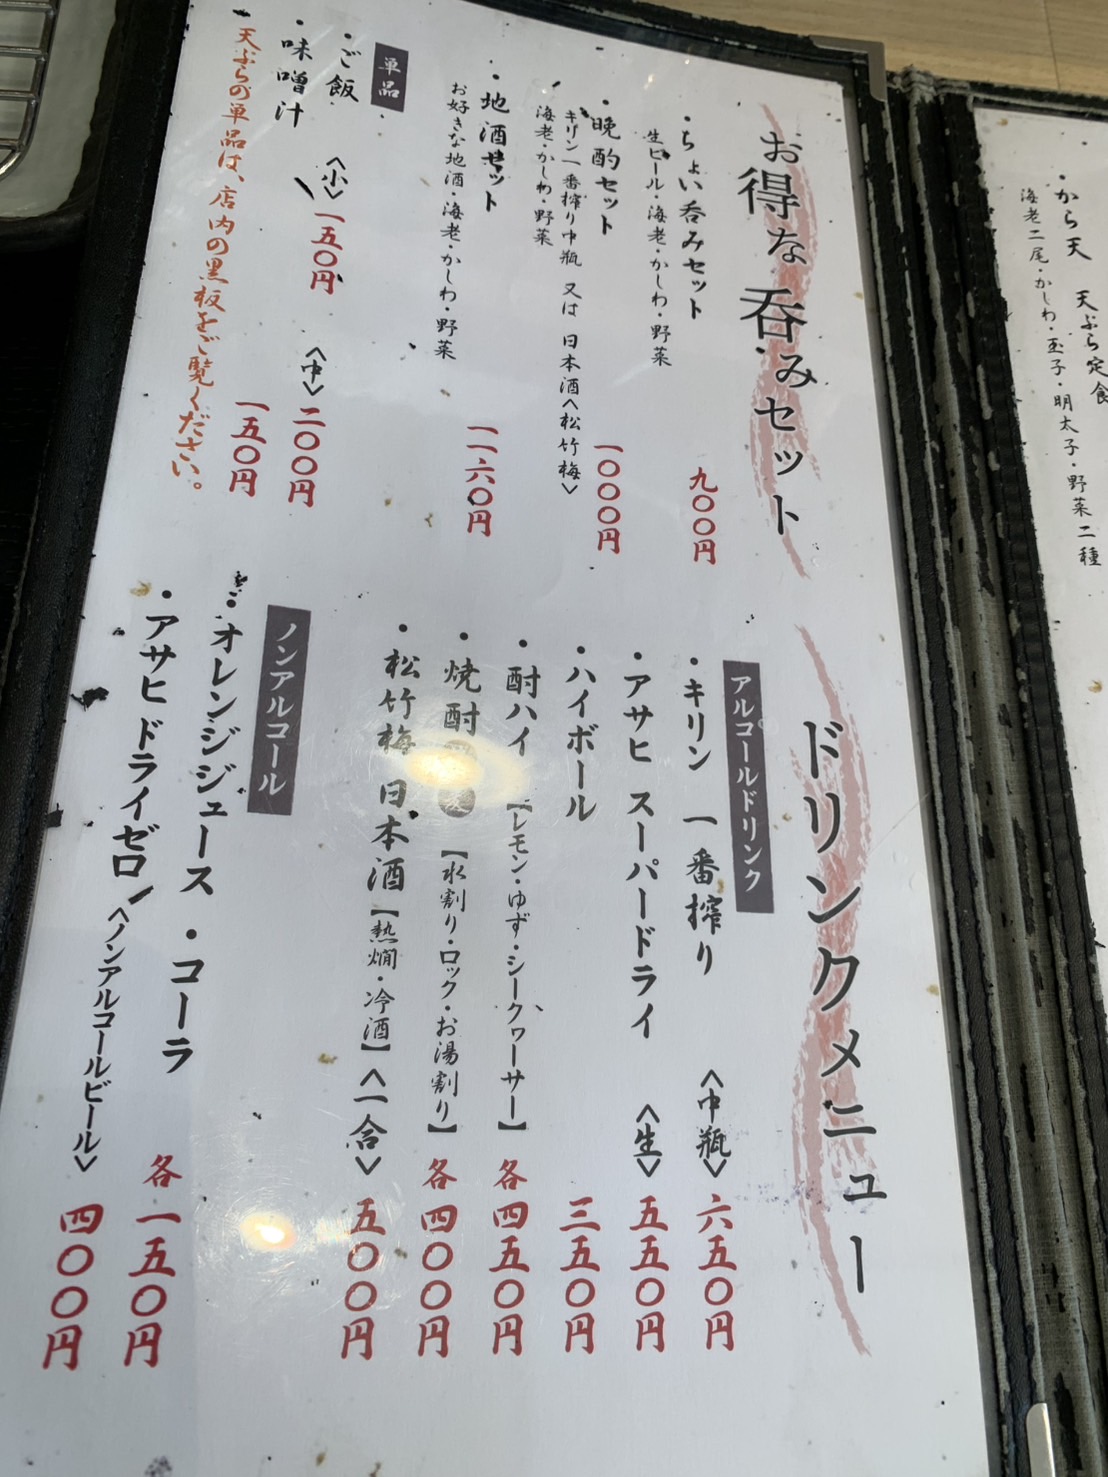 ・から天 天ぷら定食
海老二尾・かしわ・玉子・明太子・野菜二種
お得な呑みセット
・ちょい呑みセット
生ビール・海老・かしわ・野菜
九〇〇円
・晩酌セット
キリン一番搾り中瓶 又は 日本酒〈松竹梅〉
海老・かしわ・野菜
一〇〇〇円
・地酒セット
お好きな地酒・海老・かしわ・野菜
一一六〇円
単品
・ご飯 〈小〉一五〇円 〈中〉二〇〇円
・味噌汁 一五〇円
天ぷらの単品は、店内の黒板をご覧ください。
ドリンクメニュー
アルコールドリンク
・キリン 一番搾り 〈中瓶〉 六五〇円
・アサヒ スーパードライ 〈生〉 五五〇円
・ハイボール 三五〇円
・酎ハイ 【レモン・ゆず・シークヮーサー】 各四五〇円
・焼酎 麦 【水割り・ロック・お湯割り】 各四〇〇円
・松竹梅 日本酒 【熱燗・冷酒】 〈一合〉 五〇〇円
ノンアルコール
・オレンジジュース ・コーラ 各一五〇円
・アサヒ ドライゼロ 〈ノンアルコールビール〉 四〇〇円